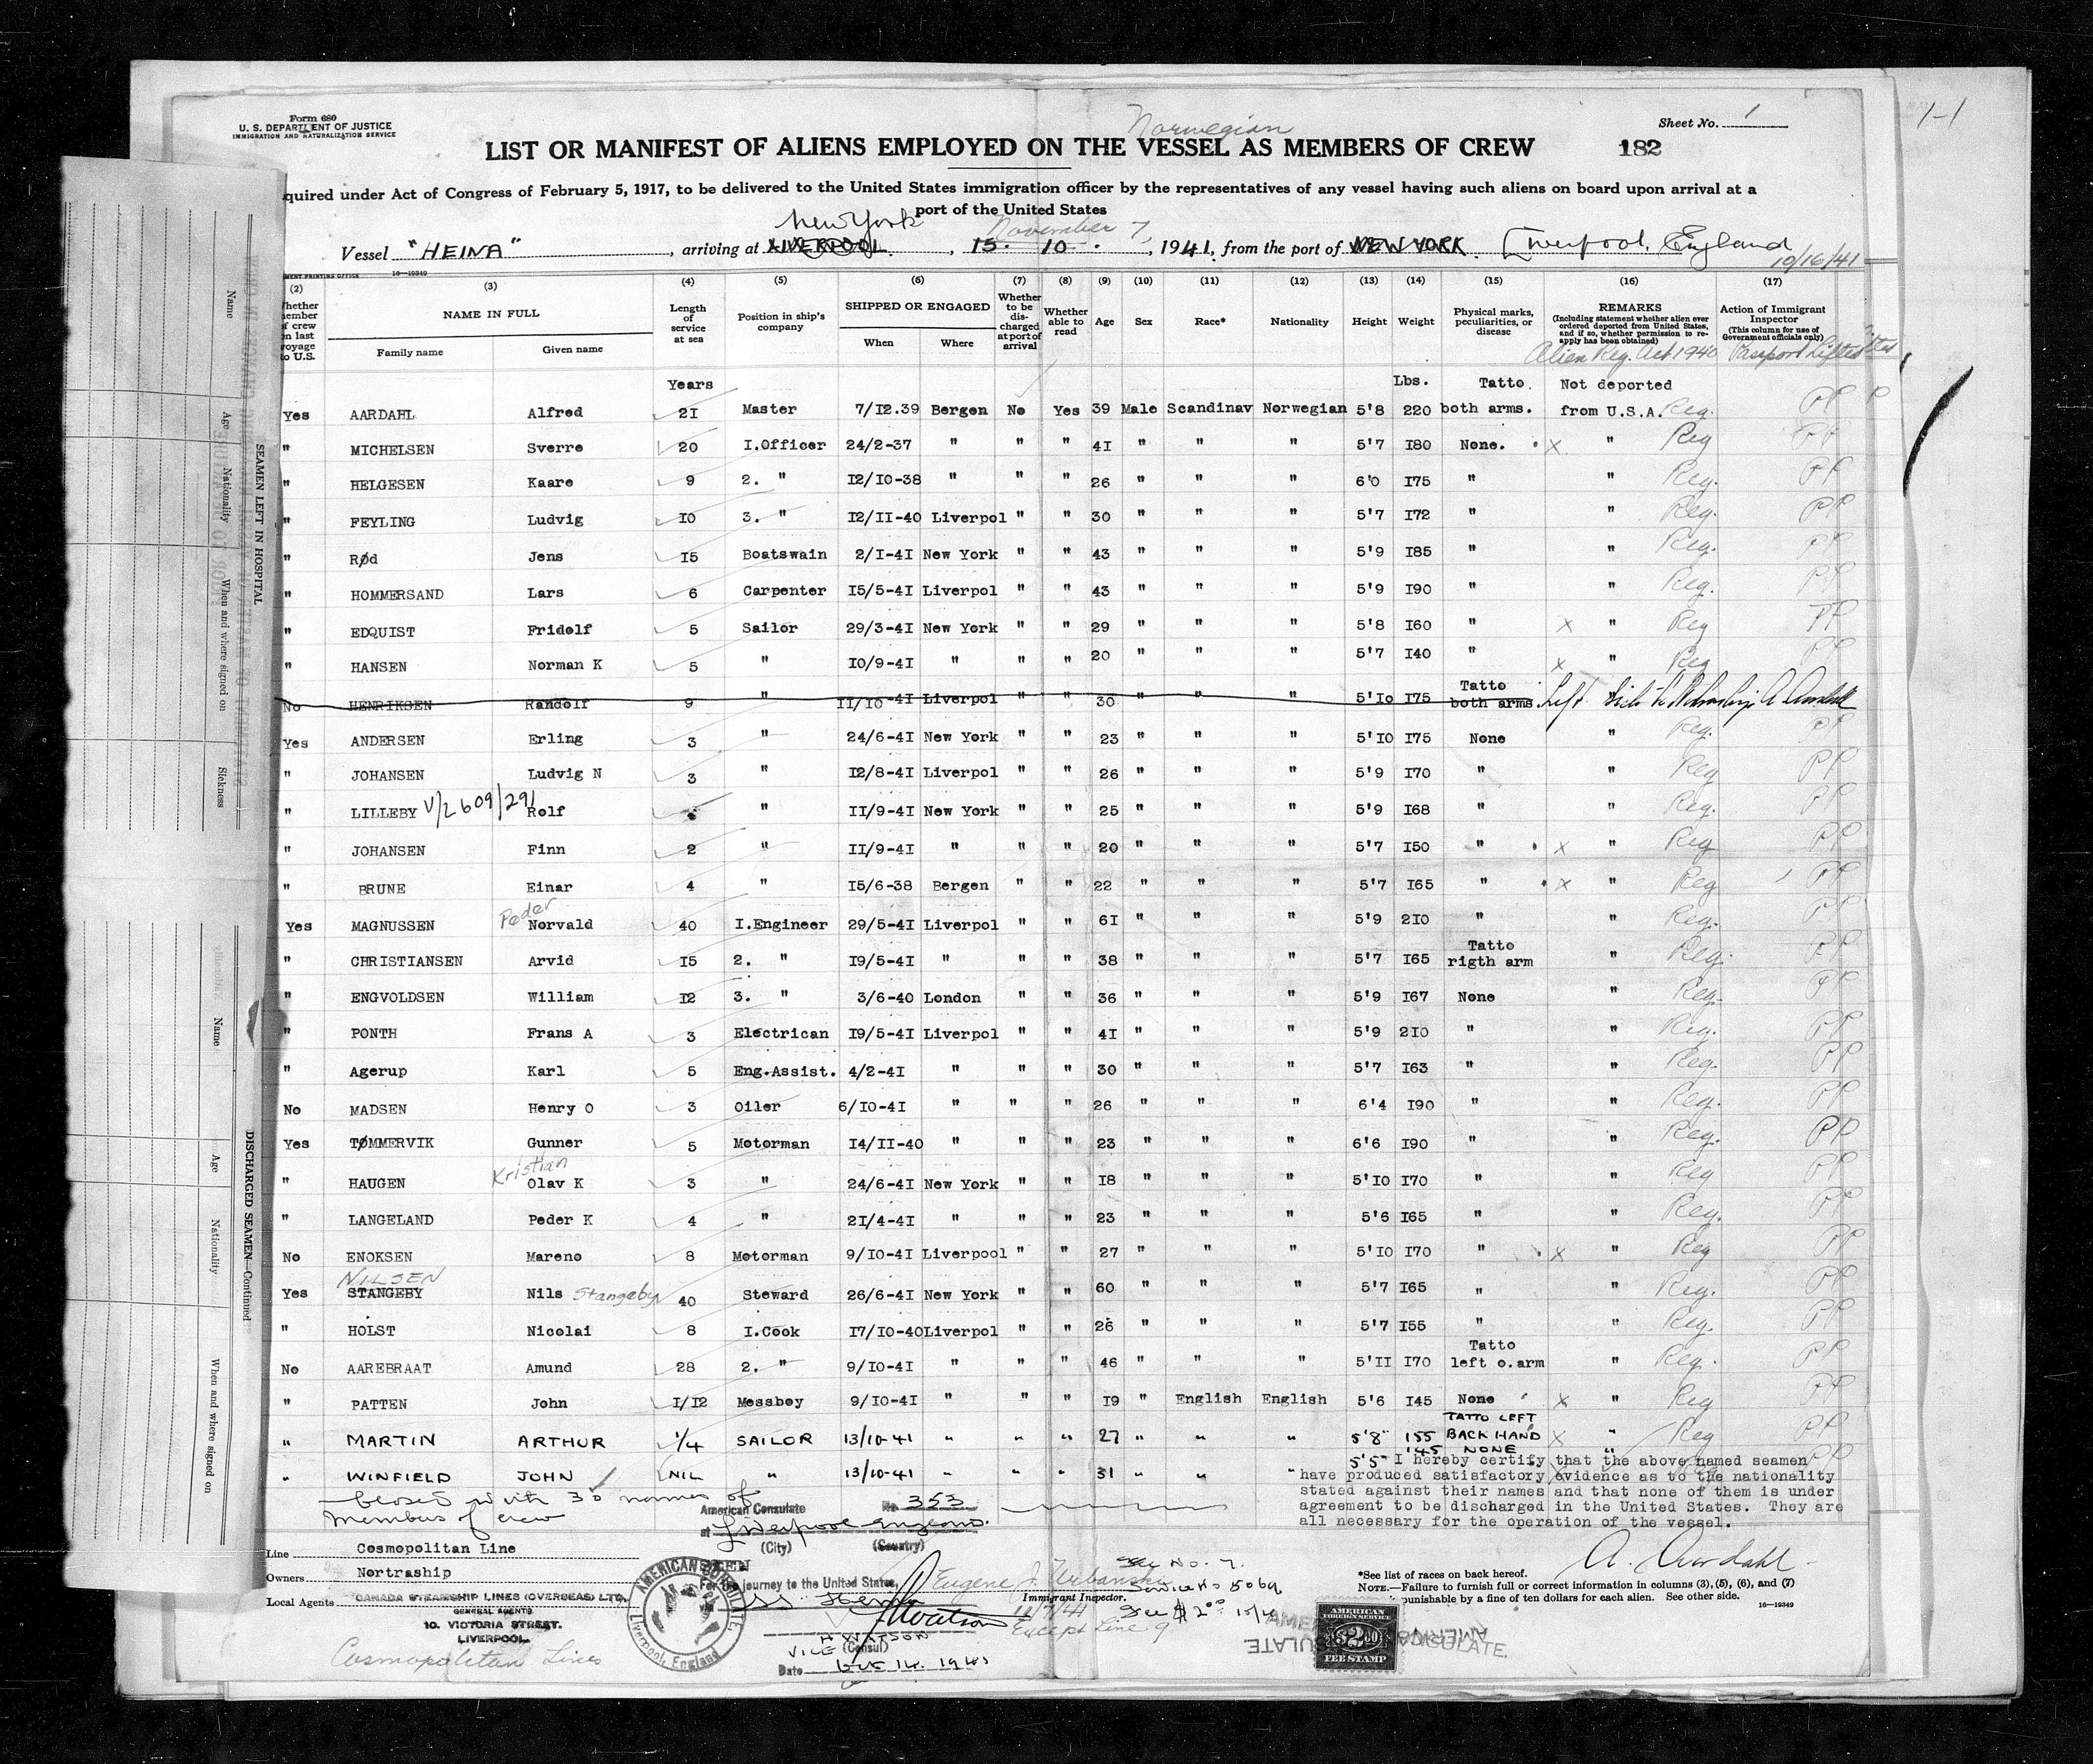 1-1
Form 680
U. S. DEPARTMENT OF JUSTICE
IMMIGRATION AND NATURALIZATION SERVICE
Norwegian
Sheet No. 1
LIST OR MANIFEST OF ALIENS EMPLOYED ON THE VESSEL AS MEMBERS OF CREW 182
quired under Act of Congress of February 5, 1917, to be delivered to the United States immigration officer by the representatives of any vessel having such aliens on board upon arrival at a
port of the United States
New York November 7,
Vessel "HEINA", arriving at LIVERPOOL, 15. 10., 1941, from the port of NEW YORK. Liverpool, England
10/16/41
MENT PRINTING OFFICE 16—19349
(2) (3) (4) (5) (6) (7) (8) (9) (10) (11) (12) (13) (14) (15) (16) (17)
hether member of crew on last voyage to U.S.
NAME IN FULL
Family name Given name
Length of service at sea
Position in ship's company
SHIPPED OR ENGAGED
When Where
Whether to be discharged at port of arrival
Whether able to read
Age Sex Race* Nationality Height Weight
Physical marks, peculiarities, or disease
REMARKS
(Including statement whether alien ever ordered deported from United States, and if so, whether permission to reapply has been obtained)
Alien Reg. Act 1940
Action of Immigrant Inspector
(This column for use of Government officials only)
Passport Lifted
Years Lbs. Tatto. Not deported
Yes AARDAHL Alfred 21 Master 7/12.39 Bergen No Yes 39 Male Scandinav Norwegian 5'8 220 both arms. from U.S.A. Reg. PP
" MICHELSEN Sverre 20 I.Officer 24/2-37 " " " 41 " " " 5'7 180 None. x " Reg PP
" HELGESEN Kaare 9 2. " 12/10-38 " " " 26 " " " 6'0 175 " " Reg. PP
" FEYLING Ludvig 10 3. " 12/11-40 Liverpol " " 30 " " " 5'7 172 " " Reg. PP
" RØd Jens 15 Boatswain 2/1-41 New York " " 43 " " " 5'9 185 " " Reg. PP
" HOMMERSAND Lars 6 Carpenter 15/5-41 Liverpol " " 43 " " " 5'9 190 " " Reg. PP
" EDQUIST Fridolf 5 Sailor 29/3-41 New York " " 29 " " " 5'8 160 " x " Reg PP
" HANSEN Norman K 5 " 10/9-41 " " " 20 " " " 5'7 140 " x " Reg PP
No HENRIKSEN Randolf 9 " 11/10-41 Liverpol 30 " " " 5'10 175 Tatto both arms Left
Yes ANDERSEN Erling 3 " 24/6-41 New York " " 23 " " " 5'10 175 None " Reg. PP
" JOHANSEN Ludvig N 3 " 12/8-41 Liverpol " " 26 " " " 5'9 170 " " Reg PP
" LILLEBY V/2609/291 Rolf " 11/9-41 New York " " 25 " " " 5'9 168 " " Reg. PP
" JOHANSEN Finn 2 " 11/9-41 " " " 20 " " " 5'7 150 " x " Reg PP
" BRUNE Einar 4 " 15/6-38 Bergen " " 22 " " " 5'7 165 " x " Reg PP
Yes MAGNUSSEN Peder Norvald 40 I.Engineer 29/5-41 Liverpol " " 61 " " " 5'9 210 " " Reg. PP
" CHRISTIANSEN Arvid 15 2. " 19/5-41 " " " 38 " " " 5'7 165 Tatto rigth arm " Reg. PP
" ENGVOLDSEN William 12 3. " 3/6-40 London " " 36 " " " 5'9 167 None " Reg. PP
" PONTH Frans A 3 Electrican 19/5-41 Liverpol " " 41 " " " 5'9 210 " " Reg. PP
" Agerup Karl 5 Eng.Assist. 4/2-41 " " " 30 " " " 5'7 163 " " Reg. PP
No MADSEN Henry O 3 Oiler 6/10-41 " " " 26 " " " 6'4 190 " " Reg. PP
Yes TØMMERVIK Gunner 5 Motorman 14/11-40 " " " 23 " " " 6'6 190 " " Reg. PP
" HAUGEN Kristian Olav K 3 " 24/6-41 New York " " 18 " " " 5'10 170 " " Reg PP
" LANGELAND Peder K 4 " 21/4-41 " " " 23 " " " 5'6 165 " " Reg. PP
No ENOKSEN Mareno 8 Motorman 9/10-41 Liverpool " " 27 " " " 5'10 170 " x " Reg PP
NILSEN
Yes STANGEBY Nils Stangeby 40 Steward 26/6-41 New York " " 60 " " " 5'7 165 " " Reg. PP
" HOLST Nicolai 8 I.Cook 17/10-40 Liverpol " " 26 " " " 5'7 155 " " Reg. PP
No AAREBRAAT Amund 28 2. " 9/10-41 " " " 46 " " " 5'11 170 Tatto left o.arm " Reg. PP
" PATTEN John 1/12 Messboy 9/10-41 " " " 19 " English English 5'6 145 None x " Reg PP
" MARTIN ARTHUR 1/4 SAILOR 13/10-41 " " " 27 " " " 5'8" 155 TATTO LEFT BACK HAND x " Reg PP
" WINFIELD JOHN NIL " 13/10-41 " " " 31 " " " 5'5" 145 NONE "
I hereby certify that the above named seamen
have produced satisfactory evidence as to the nationality
stated against their names and that none of them is under
agreement to be discharged in the United States. They are
all necessary for the operation of the vessel.
A. Aardahl
Closed with 30 names of
members of crew
American Consulate No 353
at Liverpool England.
(City) (Country)
SEEN
For the journey to the United States,
SS Heina
H WATSON
VICE (Consul)
Date Oct 14. 1941
AMERICAN CONSULATE
Liverpool, England
Line Cosmopolitan Line
Owners Nortraship
Local Agents CANADA STEAMSHIP LINES (OVERSEAS) LTD.
GENERAL AGENTS
10. VICTORIA STREET.
LIVERPOOL.
Cosmopolitan Lines
Eugene J. Urbanski
Immigrant Inspector.
11/7/41
Except Line 9
No. 7.
Service No 5069
Fee $2.00
*See list of races on back hereof.
NOTE.—Failure to furnish full or correct information in columns (3), (5), (6), and (7)
punishable by a fine of ten dollars for each alien. See other side.
16—19349
AMERICAN
FOREIGN SERVICE
$2.00
FEE STAMP
SEAMEN LEFT IN HOSPITAL
Name Age Nationality When and where signed on Sickness
DISCHARGED SEAMEN—Continued
Name Age Nationality When and where signed on